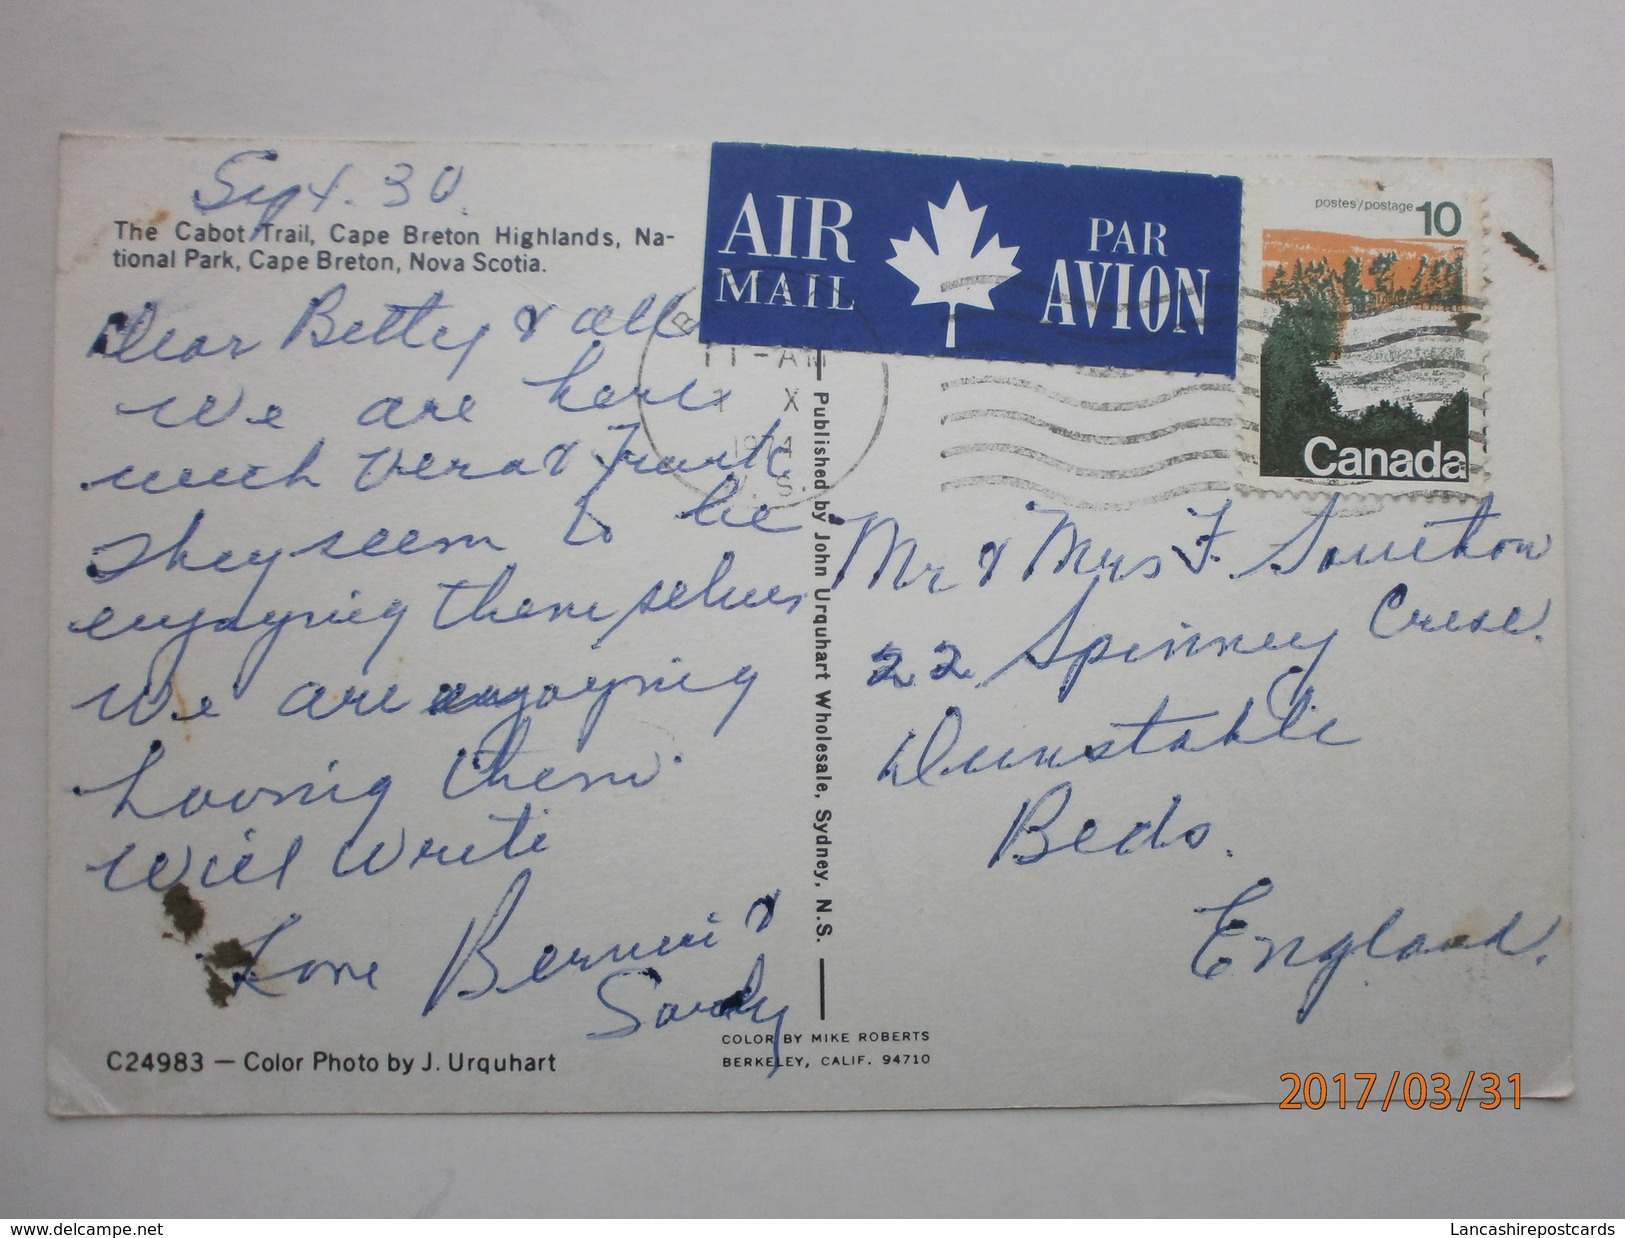 Sept. 30.
The Cabot Trail, Cape Breton Highlands, Na-
tional Park, Cape Breton, Nova Scotia.
Dear Betty & all
We are here
with Vera & Frank
They seem to be
enjoying themselves
We are enjoying
having them.
Will write
Love Bernie &
Sandy
C24983 — Color Photo by J. Urquhart
AIR
MAIL
PAR
AVION
11-AM
1 X
postes/postage 10
Canada
Published by John Urquhart Wholesale, Sydney, N.S.
Mr & Mrs F.
22 Spinney Cresc.
Dunstable
Beds.
England.
COLOR BY MIKE ROBERTS
BERKELEY, CALIF. 94710
2017/03/31
www.delcampe.net
Lancashirepostcards